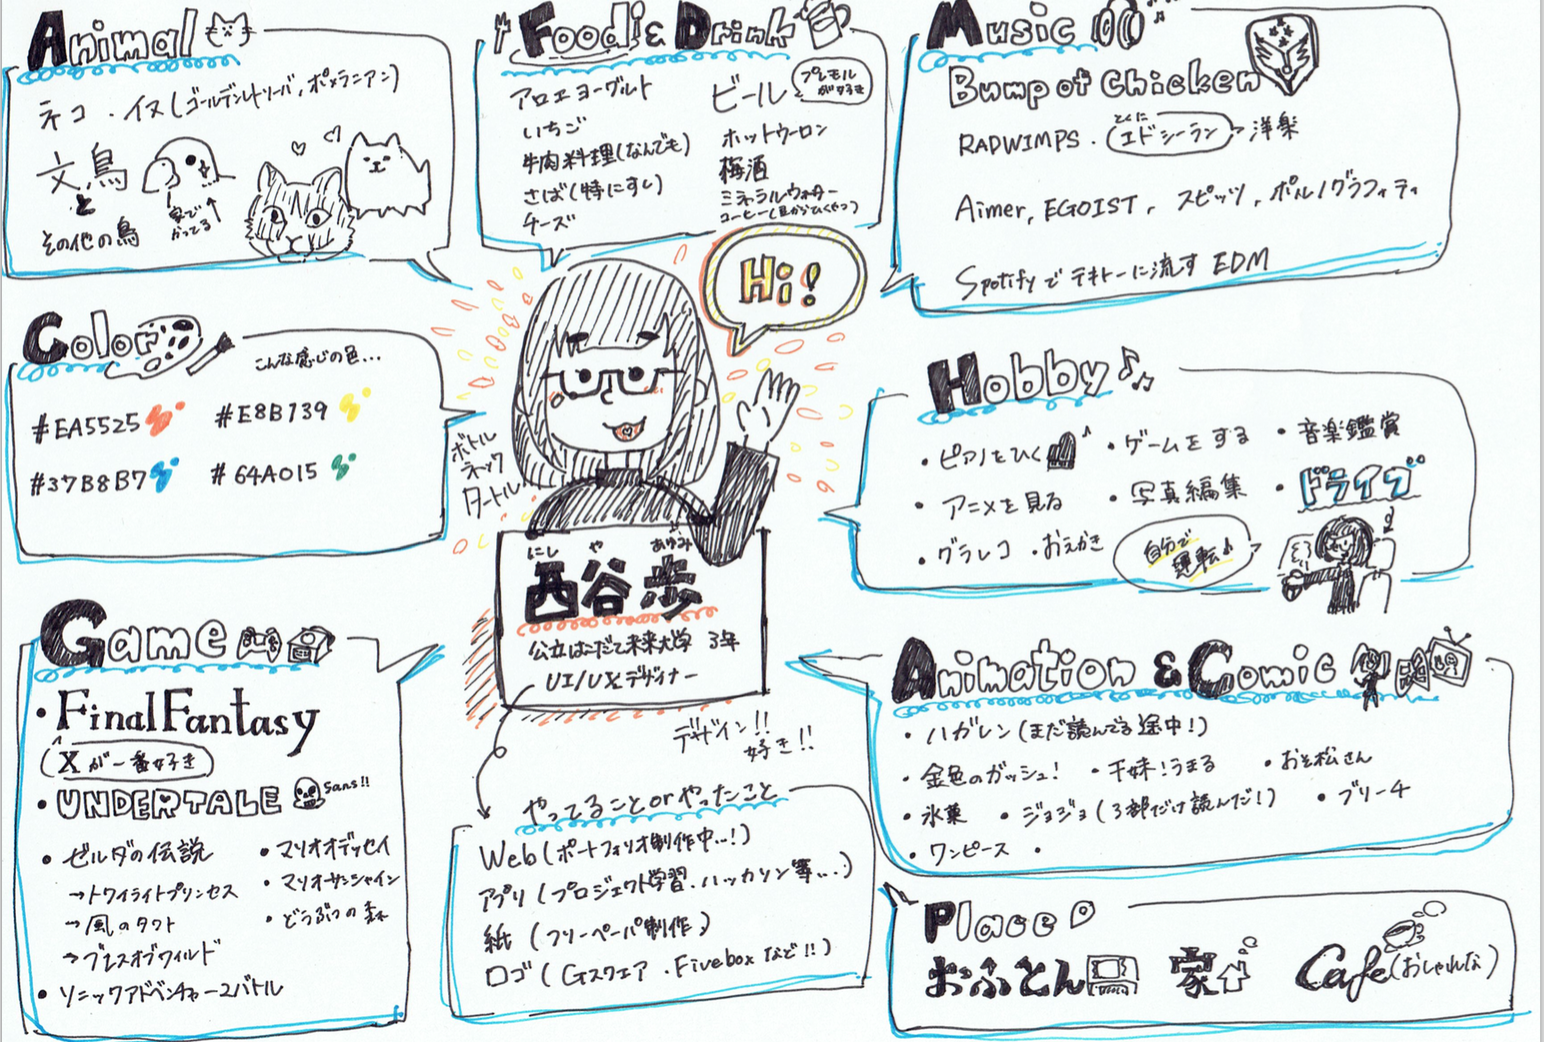 Animal
ネコ・イヌ(ゴールデンレトリーバ,ポメラニアン)
文鳥
と
その他の鳥
家で
かってる
Food & Drink
アロエヨーグルト
いちご
牛肉料理(なんでも)
さば(特にすし)
チーズ
ビール
プレモル
が好き
ホットウーロン
梅酒
ミネラルウォーター
コーヒー(豆からひくやつ)
Music
Bump of Chicken
RADWIMPS・
とくに
エドシーラン
洋楽
Aimer, EGOIST, スピッツ, ポルノグラフィティ
Spotifyでテキトーに流すEDM
Color
こんな感じの色...
#EA5525
#E8B139
#37B8B7
#64A015
Hi!
ボトル
ネック
タートル
にし や あゆみ
西谷 歩
公立はこだて未来大学 3年
UI/UXデザイナー
デザイン!!
好き!!
Hobby
・ピアノをひく
・ゲームをする
・音楽鑑賞
・アニメを見る
・写真編集
・ドライブ
・グラレコ ・おえかき
自分で
運転♪
Game
・Final Fantasy
(Xが一番好き)
・UNDERTALE
Sans!!
・ゼルダの伝説
→トワイライトプリンセス
→風のタクト
→ブレスオブワイルド
・ソニックアドベンチャー2バトル
・マリオオデッセイ
・マリオサンシャイン
・どうぶつの森
やってることorやったこと
Web(ポートフォリオ制作中...!)
アプリ(プロジェクト学習・ハッカソン等...)
紙(フリーペーパ制作)
ロゴ(Gスクエア・Fivebox など!!)
Animation & Comic
・ハガレン(まだ読んでる途中!)
・金色のガッシュ! ・干妹!うまる ・おそ松さん
・氷菓 ・ジョジョ(3部だけ読んだ!) ・ブリーチ
・ワンピース ・
Place
おふとん 家 Cafe(おしゃれな)